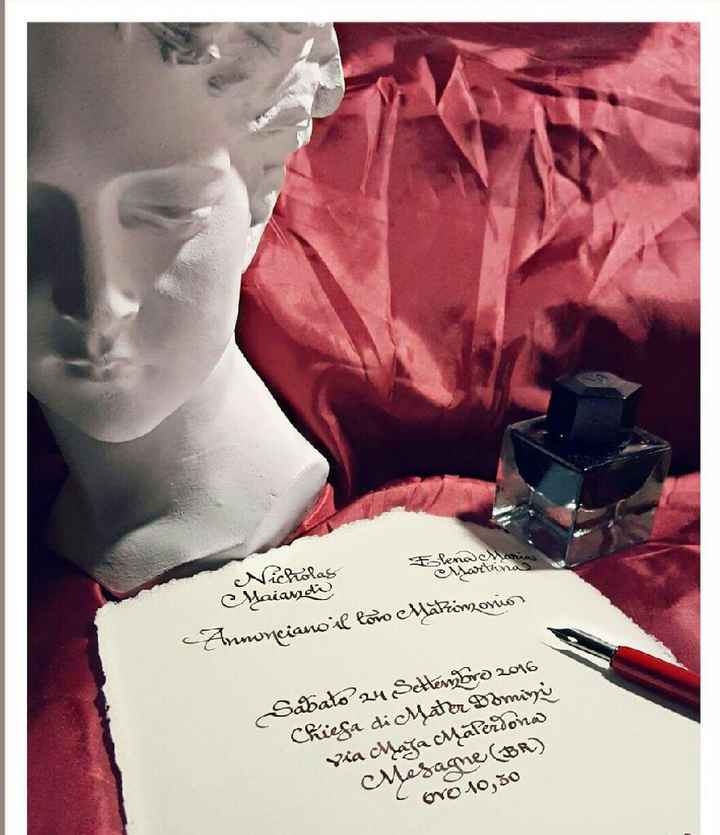 Nicholas
Maiandi
Elena Maria
Martina
Annunciano il loro Matrimonio
Sabato 24 Settembre 2016
Chiesa di Mater Domini
via Maja Materdona
Mesagne (BR)
ore 10,30